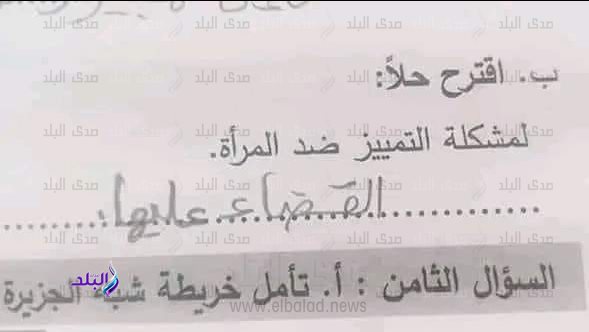 ب. اقترح حلاً:
لمشكلة التمييز ضد المرأة.
القضاء عليها
السؤال الثامن : أ. تأمل خريطة شبه الجزيرة
صدى البلد
www.elbalad.news